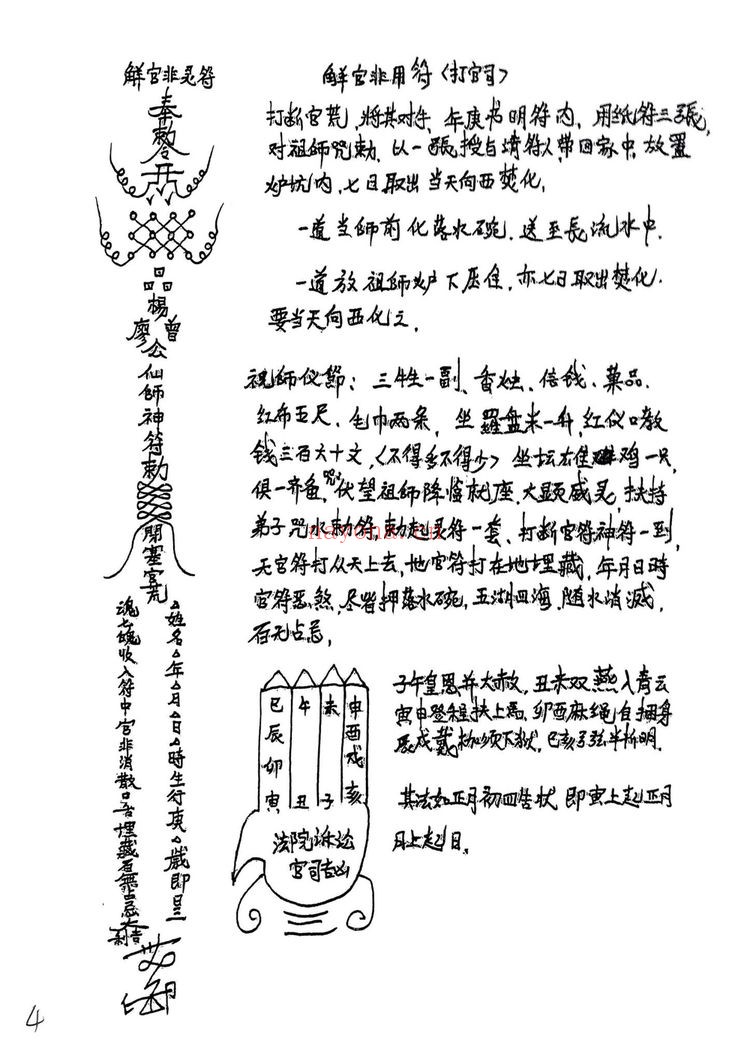 解官非灵符
奉
勅
令
品
楊
廖 曾
公
仙
師
神
符
勅
開
塞
官
荒
△姓名△年△月△日△時生行庚△歲即日
魂七魄收入符中官非消散口舌埋藏百無占忌大
吉
解官非用符〈打官司〉
打断官荒，將其对手，年庚书明符内，用纸符三張，
对祖師咒勅，以一張授与請符人，带回家中，放置
炉坑内，七日取出当天向西焚化，
一道当師前化落水碗，送至長流水中，
一道放祖師炉下压住，亦七日取出焚化，
要当天向西化之，
祝師仪節：三牲一副、香烛、信钱、菓品、
红布五尺、毛巾两条，坐羅盘米一升，红仪口教
钱三百六十文，〈不得多不得少〉坐坛雄鸡一只，
俱一齐备，咒 伏望祖師降临就座，大显威灵，扶持
弟子咒水勅符，勅起灵符一套、打断官符神符一到，
天官符打从天上去，地官符打在地埋藏，年月日時
官符恶煞，尽皆押落水碗，五湖四海，随水消滅，
百无占忌，
巳 午 未 申
辰 酉
卯 戌
寅 丑 子 亥
法院诉讼
官司吉凶
子午皇恩并大赦，丑未双燕入青云
寅申登程扶上馬，卯酉麻绳自捆身
辰戌戴枷必须下狱，巳亥弓弦半折明，
其法如正月初四告状，即寅上起正月
月上起日，
nayona.cn
4